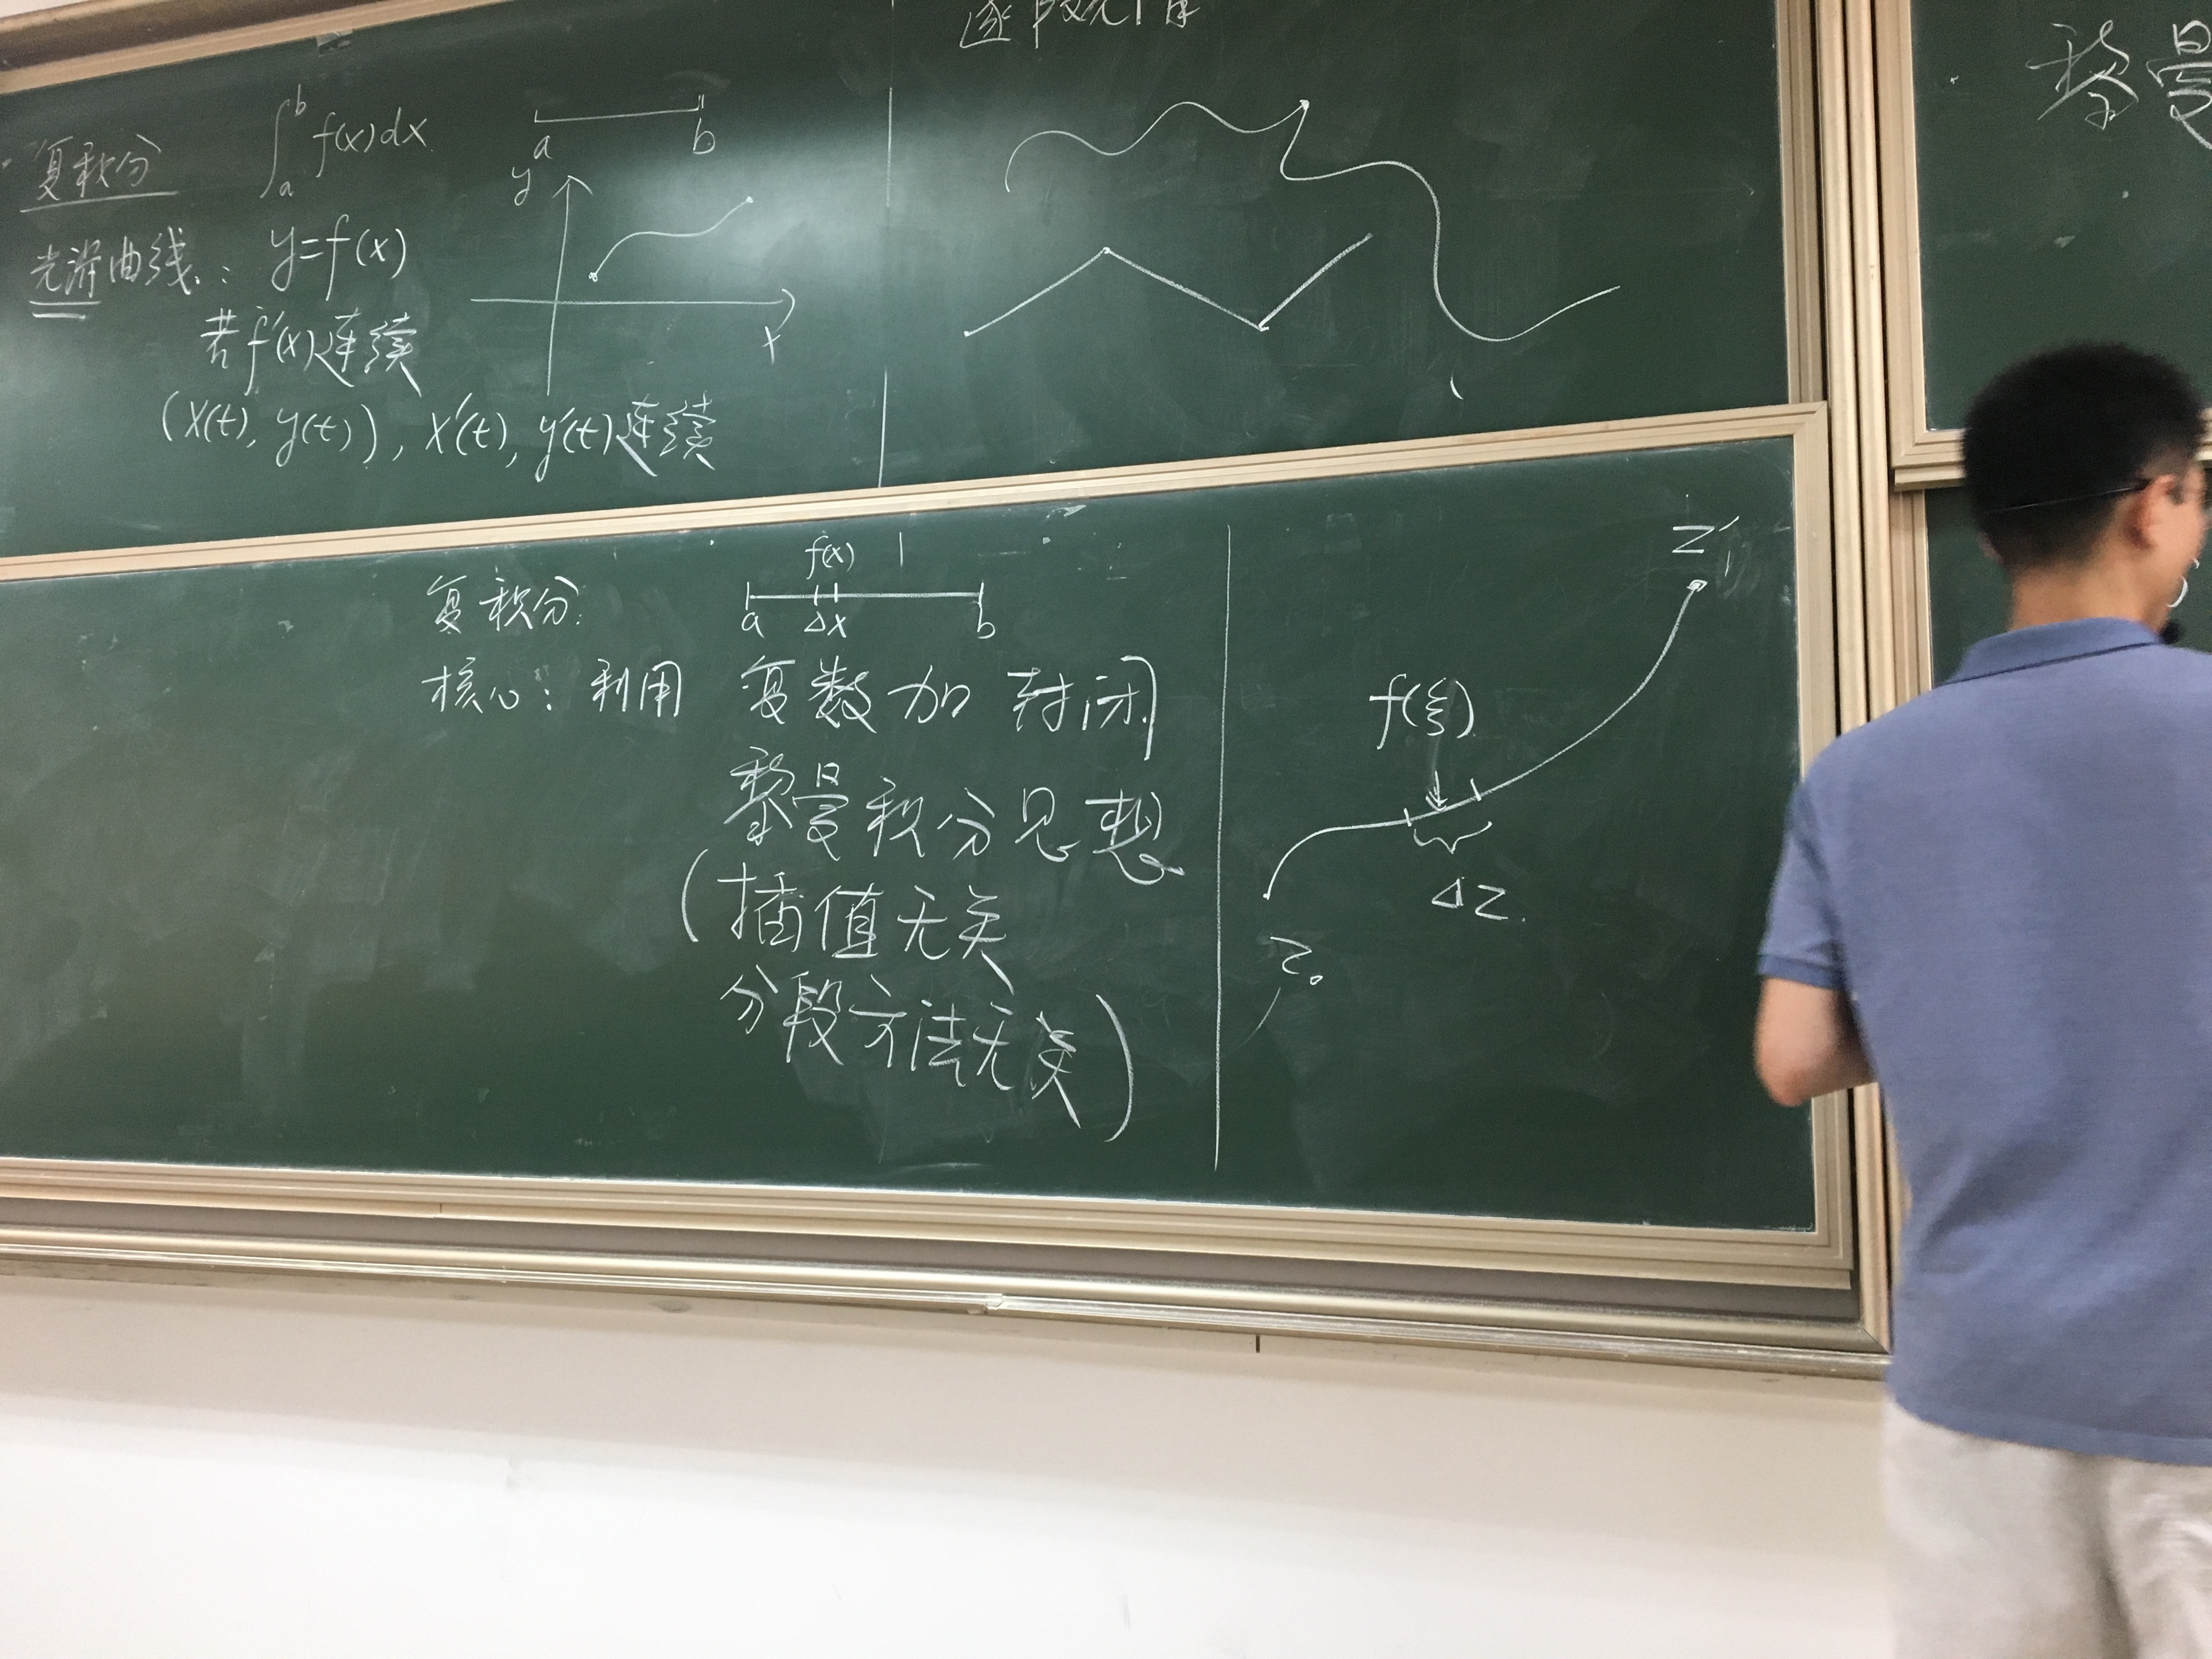 复积分 ∫_a^b f(x)dx
a b
光滑曲线: y=f(x)
y
x
若f′(x)连续
(x(t), y(t)), x′(t), y′(t)连续
逐段光滑
黎曼
复积分:
f(x)
a Δx b
核心: 利用 复数加 封闭
黎曼积分思想
(插值无关
分段方法无关)
z′
f(ξ)
Δz.
z₀